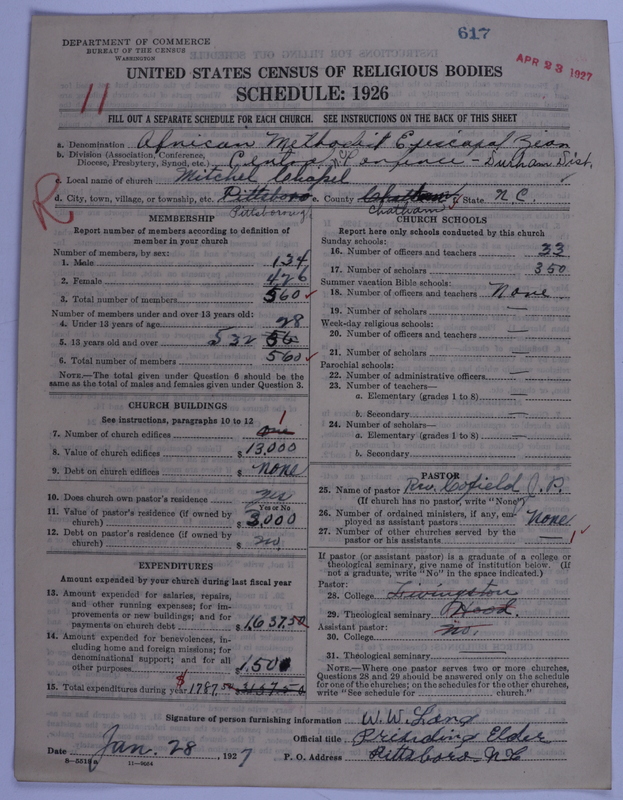 617
APR 23 1927
DEPARTMENT OF COMMERCE
BUREAU OF THE CENSUS
WASHINGTON
UNITED STATES CENSUS OF RELIGIOUS BODIES
SCHEDULE: 1926
11
FILL OUT A SEPARATE SCHEDULE FOR EACH CHURCH. SEE INSTRUCTIONS ON THE BACK OF THIS SHEET
a. Denomination African Methodist Episcopal Zion
b. Division (Association, Conference, Diocese, Presbytery, Synod, etc.) Central Conference - Durham Dist.
c. Local name of church Mitchel Chapel
R
d. City, town, village, or township, etc. Pittsboro e. County Chatham f. State N.C.
Pittsborough Chatham
MEMBERSHIP
Report number of members according to definition of member in your church
Number of members, by sex:
1. Male 134
2. Female 426
3. Total number of members 560
Number of members under and over 13 years old:
4. Under 13 years of age 28
5. 13 years old and over 532 56
6. Total number of members 560
NOTE.—The total given under Question 6 should be the same as the total of males and females given under Question 3.
CHURCH BUILDINGS
See instructions, paragraphs 10 to 12
7. Number of church edifices one 1
8. Value of church edifices $ 13,000
9. Debt on church edifices $ None
10. Does church own pastor's residence yes
Yes or No
11. Value of pastor's residence (if owned by church) $ 3,000
12. Debt on pastor's residence (if owned by church) $ no.
EXPENDITURES
Amount expended by your church during last fiscal year
13. Amount expended for salaries, repairs, and other running expenses; for improvements or new buildings; and for payments on church debt $ 1,637.50
14. Amount expended for benevolences, including home and foreign missions; for denominational support; and for all other purposes $ 150
15. Total expenditures during year $ 1787.50 3137.50
CHURCH SCHOOLS
Report here only schools conducted by this church
Sunday schools:
16. Number of officers and teachers 33
17. Number of scholars 350
Summer vacation Bible schools:
18. Number of officers and teachers None
19. Number of scholars —
Week-day religious schools:
20. Number of officers and teachers —
21. Number of scholars —
Parochial schools:
22. Number of administrative officers —
23. Number of teachers—
a. Elementary (grades 1 to 8) —
b. Secondary —
24. Number of scholars—
a. Elementary (grades 1 to 8) —
b. Secondary
PASTOR
25. Name of pastor Rev. Cofield J. P.
(If church has no pastor, write "None")
26. Number of ordained ministers, if any, employed as assistant pastors None
27. Number of other churches served by the pastor or his assistants — 1
If pastor (or assistant pastor) is a graduate of a college or theological seminary, give name of institution below. (If not a graduate, write "No" in the space indicated.)
Pastor:
28. College Livingston
29. Theological seminary Hood
Assistant pastor:
30. College no.
31. Theological seminary —
NOTE.—Where one pastor serves two or more churches, Questions 28 and 29 should be answered only on the schedule for one of the churches; on the schedules for the other churches, write "See schedule for ........ church."
Signature of person furnishing information W. W. Long
Official title Prisiding Elder
Date Jan. 28, 1927 P. O. Address Pittsboro N.C
8-5318a 11-9664